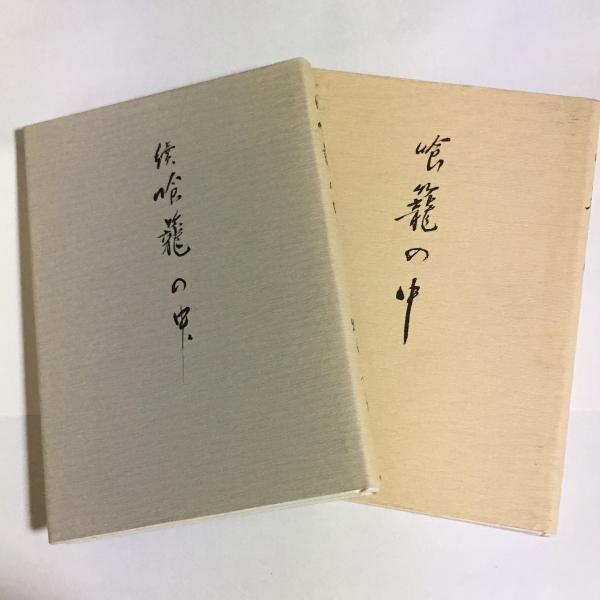 続喰籠の中
喰籠の中